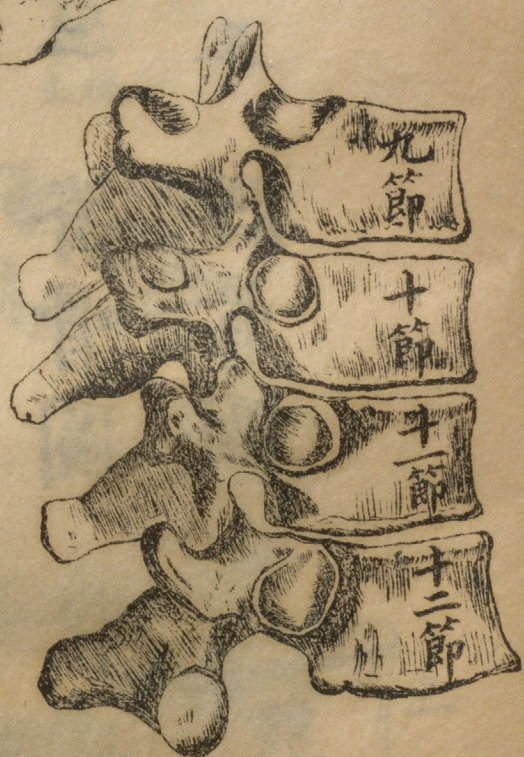 九節
十節
十一節
十二節